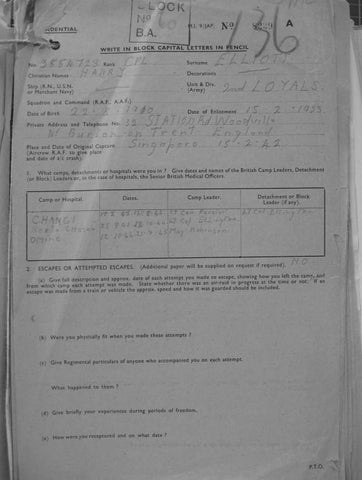 BLOCK
No 60
B.A.
M.I. 9/JAP. No
A
CONFIDENTIAL
WRITE IN BLOCK CAPITAL LETTERS IN PENCIL
No. Rank CPL Surname ELLIOTT
Christian Names HARRY Decorations
Ship (R.N., U.S.N. or Merchant Navy) Unit & Div. (Army) 2nd LOYALS
Squadron and Command (R.A.F., A.A.F.)
Date of Birth Date of Enlistment 15-2-1933
Private Address and Telephone No. 32 STATION Rd Woodville
Nr Burton on Trent England
Place and Date of Original Capture Singapore 15-2-42
(Aircrew R.A.F. to give place
and date of a/c crash).
1. What camps, detachments or hospitals were you in? Give dates and names of the British Camp Leaders, Detachment
(or Block) Leaders or, in the case of hospitals, the Senior British Medical Officers.
Camp or Hospital. Dates. Camp Leader. Detachment or Block Leader (if any).
CHANGI
2. ESCAPES OR ATTEMPTED ESCAPES. (Additional paper will be supplied on request if required). NO
(a) Give full description and approx. date of each attempt you made to escape, showing how you left the camp, and
from which camp each attempt was made. State whether there was an air-raid in progress at the time or not. If an
escape was made from a train or vehicle the approx. speed and how it was guarded should be included.
(b) Were you physically fit when you made these attempts?
(c) Give Regimental particulars of anyone who accompanied you on each attempt.
What happened to them?
(d) Give briefly your experiences during periods of freedom.
(e) How were you recaptured and on what date?
P.T.O.